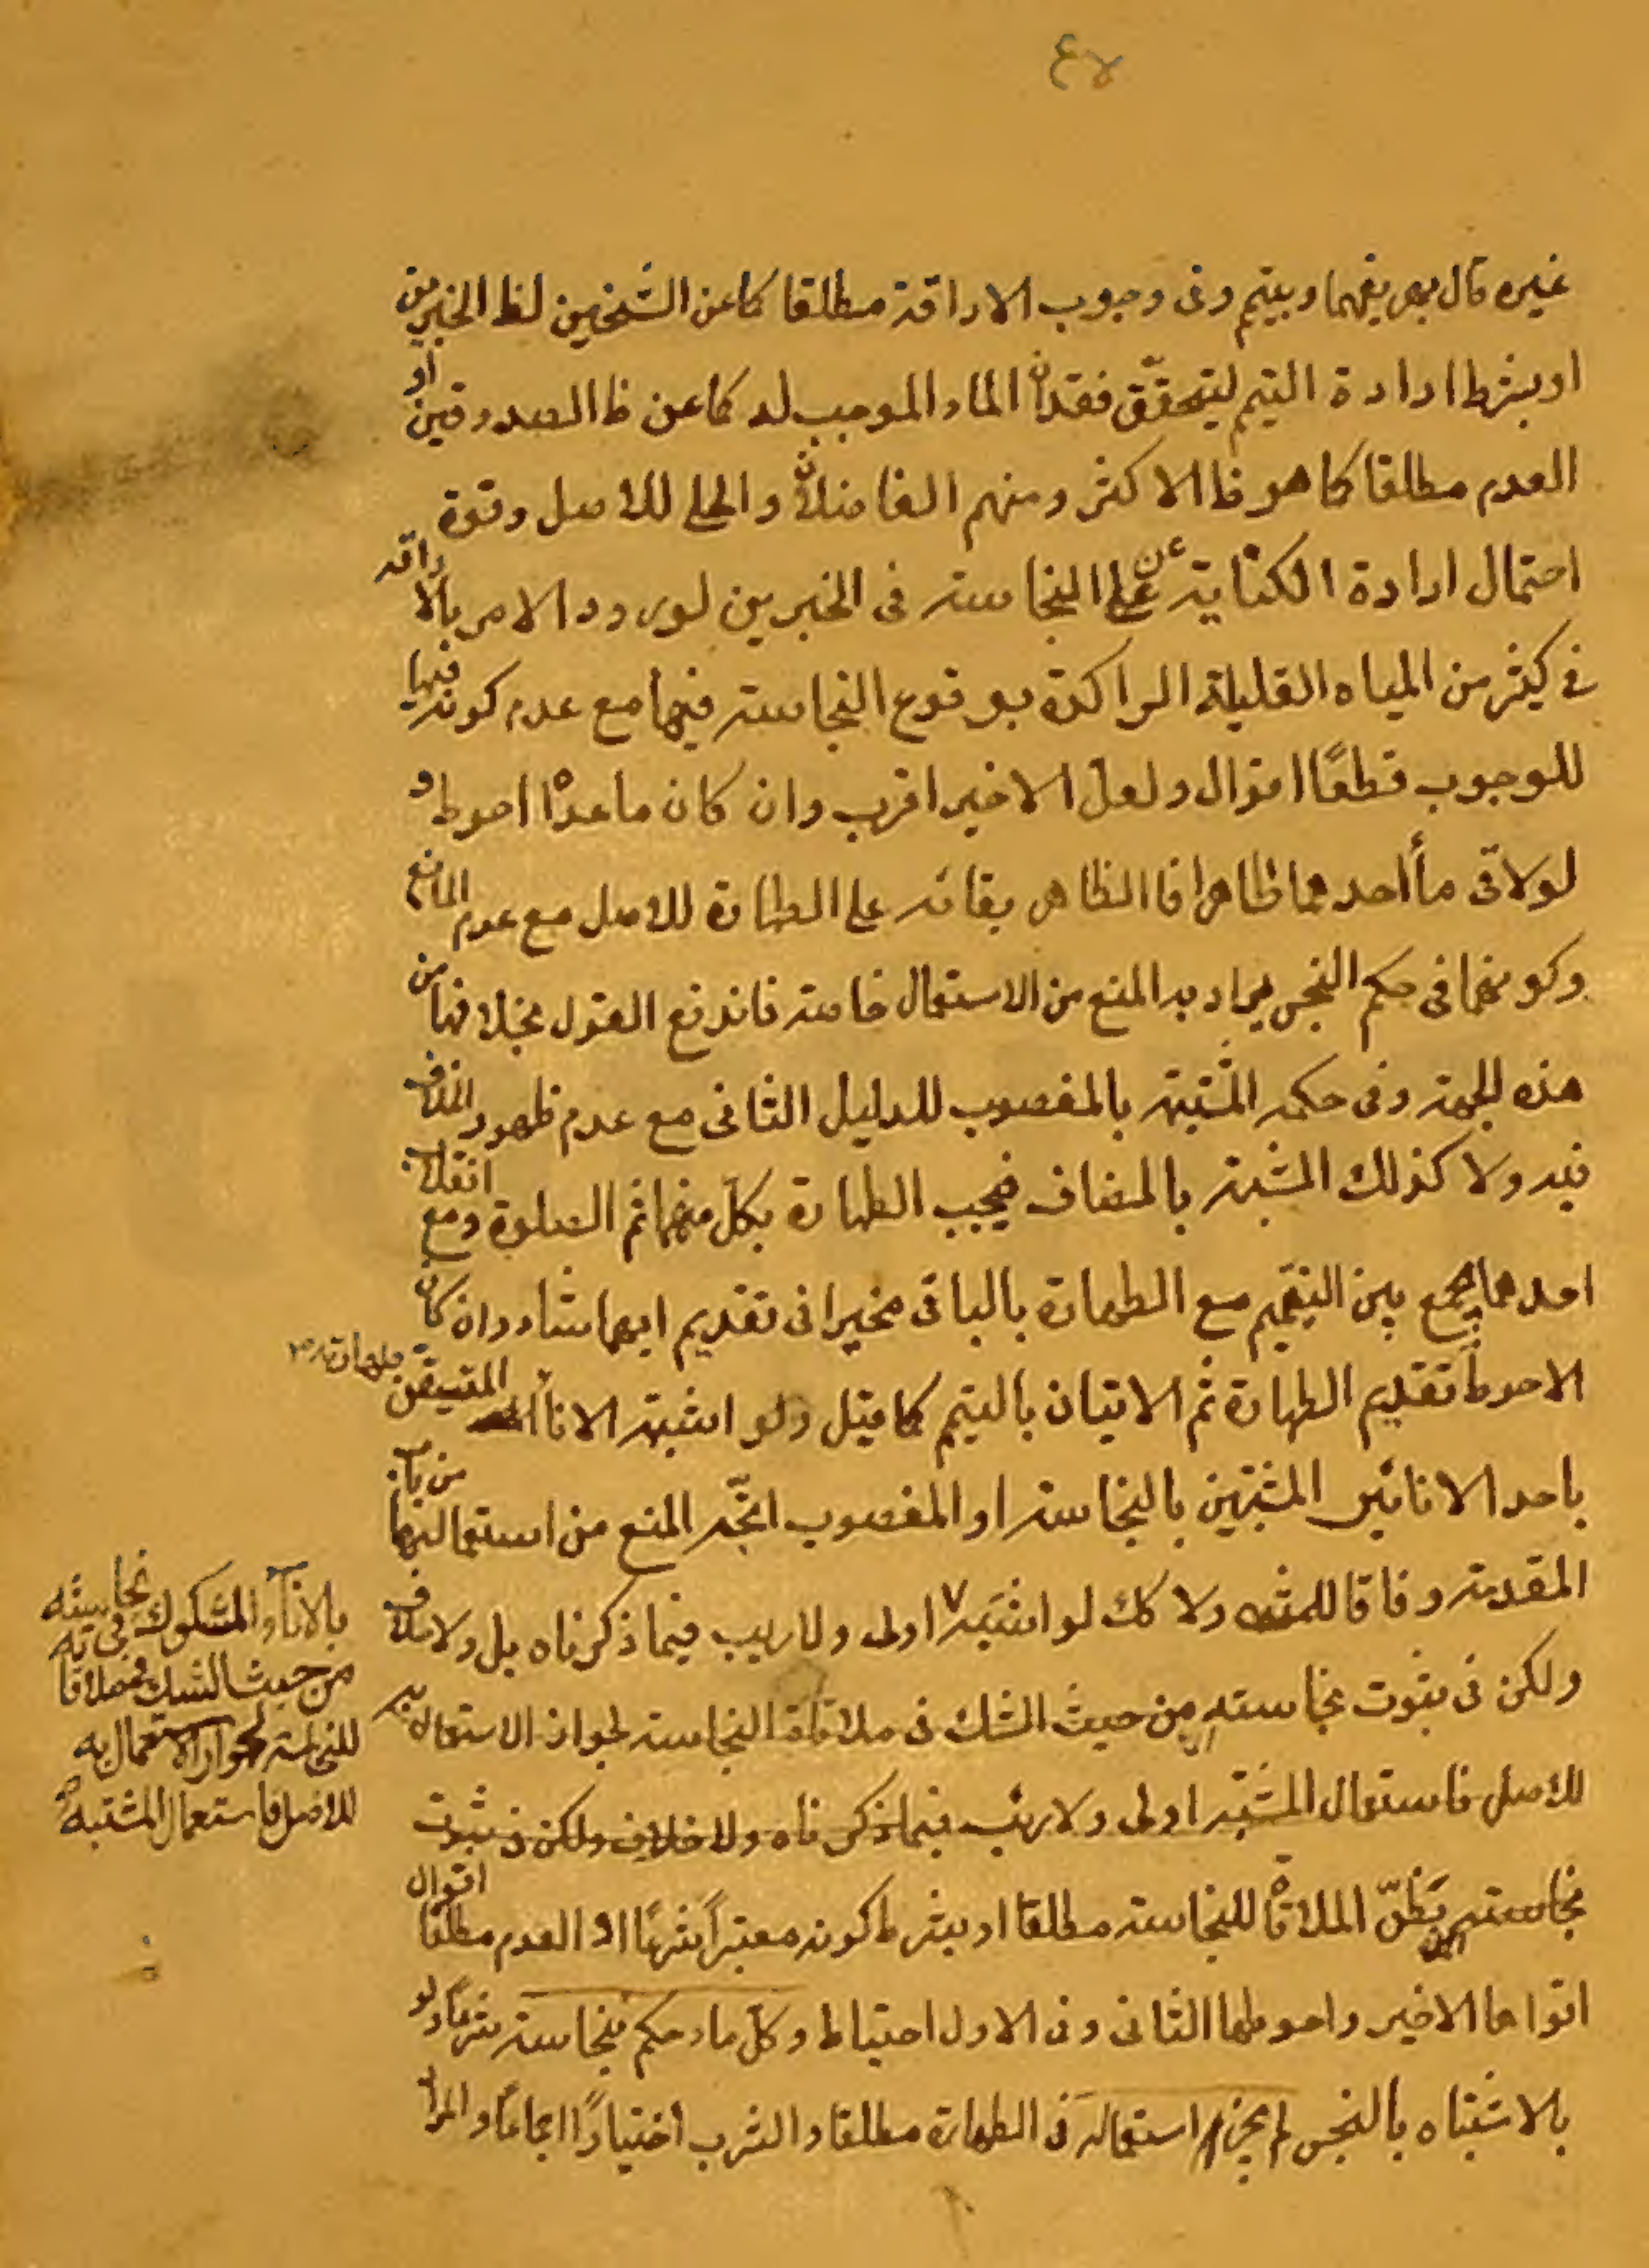 غيره قال يهريقهما ويتيم وفى وجوب الاراقة مطلقا كما عن الشيخين لظ الخبرين
او بشرط ارادة التيم ليتحقّق فقدان الماء الموجب له كما عن ظ الصدوقين او
العدم مطلقا كما هو ظ الاكثر ومنهم الفاضلان والحلى للاصل وقوة
احتمال ارادة الكناية عن النجاسة فى الخبرين لورود الامر بالاراقه
فى كثير من المياه القليلة الراكدة بوقوع النجاسة فيها مع عدم كونه فيها
للوجوب قطعًا اقوال ولعل الاخير اقرب وان كان ما عداه احوط و
لو لاقى مأ احدهما طاهرا فالظاهر بقائه على الطهارة للاصل مع عدم المانع
وكونهما فى حكم النجس يراد به المنع من الاستعمال خاصة فاندفع القول بخلافها من
هذه الجهة وفى حكمه المشتبه بالمغصوب للدليل الثانى مع عدم ظهور الخلاف
فيه ولا كذلك المشتبه بالمضاف فيجب الطهارة بكل منهما ثم الصلوة ومع انقلاب
احدهما يجمع بين التيمم مع الطهارة بالباقى مخيرا فى تقديم ايهما شاء وان كان
الاحوط تقديم الطهارة ثم الاتيان بالتيم كما قيل ولو اشتبه الاناء المتيقن طهارته
باحد الانائين المشتبهين بالنجاسة او المغصوب اتجّه المنع من استعمالهما من باب
المقدمة وفاقا للمشهـ ولا كك لو اشتبه اولى ولا ريب فيما ذكرناه بل ولا خلاف
ولكن فى ثبوت نجاسته من حيث الشك فى ملاقاة النجاسة لجواز الاستعمال به
للاصل فاستعمال المشتبه اولى ولا ريب فيما ذكرناه ولا خلاف ولكن فى ثبوت
نجاسته بظنّ الملاقاة للنجاسة مطلقا او بشرط كونه معتبراً شرعًا او العدم مطلقا اقوال
اقواها الاخير واحوطها الثانى وفى الاول احتياط وكل ماء حكم بنجاسته شرعًا ولو
بالاشتباه بالنجس لم يجز استعماله فى الطهارة مطلقا والشرب اختيارًا اجماعًا والمرا
بالاناء المشكوك فى نجاسته
من حيث الشك فى ملاقاته
للنجاسة لجواز الاستعمال به
للاصل فاستعمال المشتبه